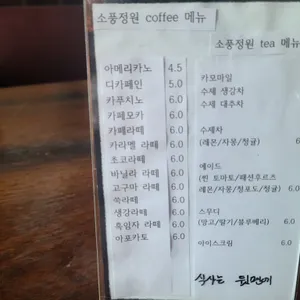 소풍정원 coffee 메뉴
아메리카노 4.5
디카페인 5.0
카푸치노 6.0
카페모카 6.0
카페라떼 6.0
카라멜 라떼 6.0
초코라떼 6.0
바닐라 라떼 6.0
고구마 라떼 6.0
쑥라떼 6.0
생강라떼 6.0
흑임자 라떼 6.0
아포카토 6.0
소풍정원 tea 메뉴
카모마일
수제 생강차
수제 대추차
수제차
(레몬/자몽/청귤) 6.0
에이드
(찐 토마토/패션후르츠
레몬/자몽/청포도/청귤) 6.0
스무디
(망고/딸기/블루베리) 6.0
아이스크림 6.0
식사는 뒷면에